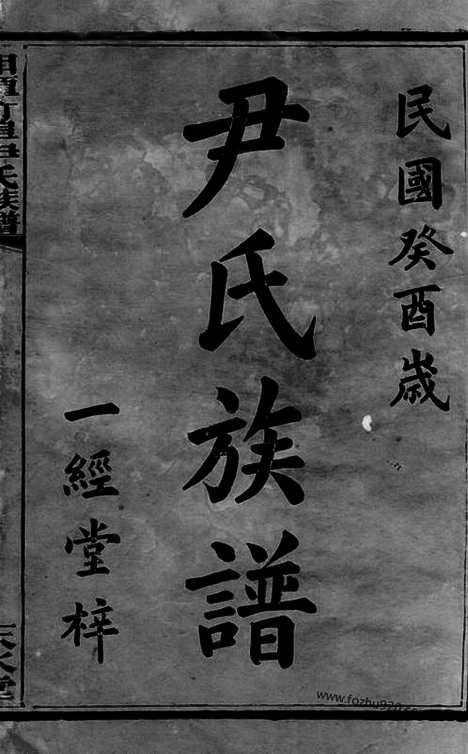 民國癸酉歲
尹氏族譜
一經堂梓
尹氏族譜
www.fozhu920.com